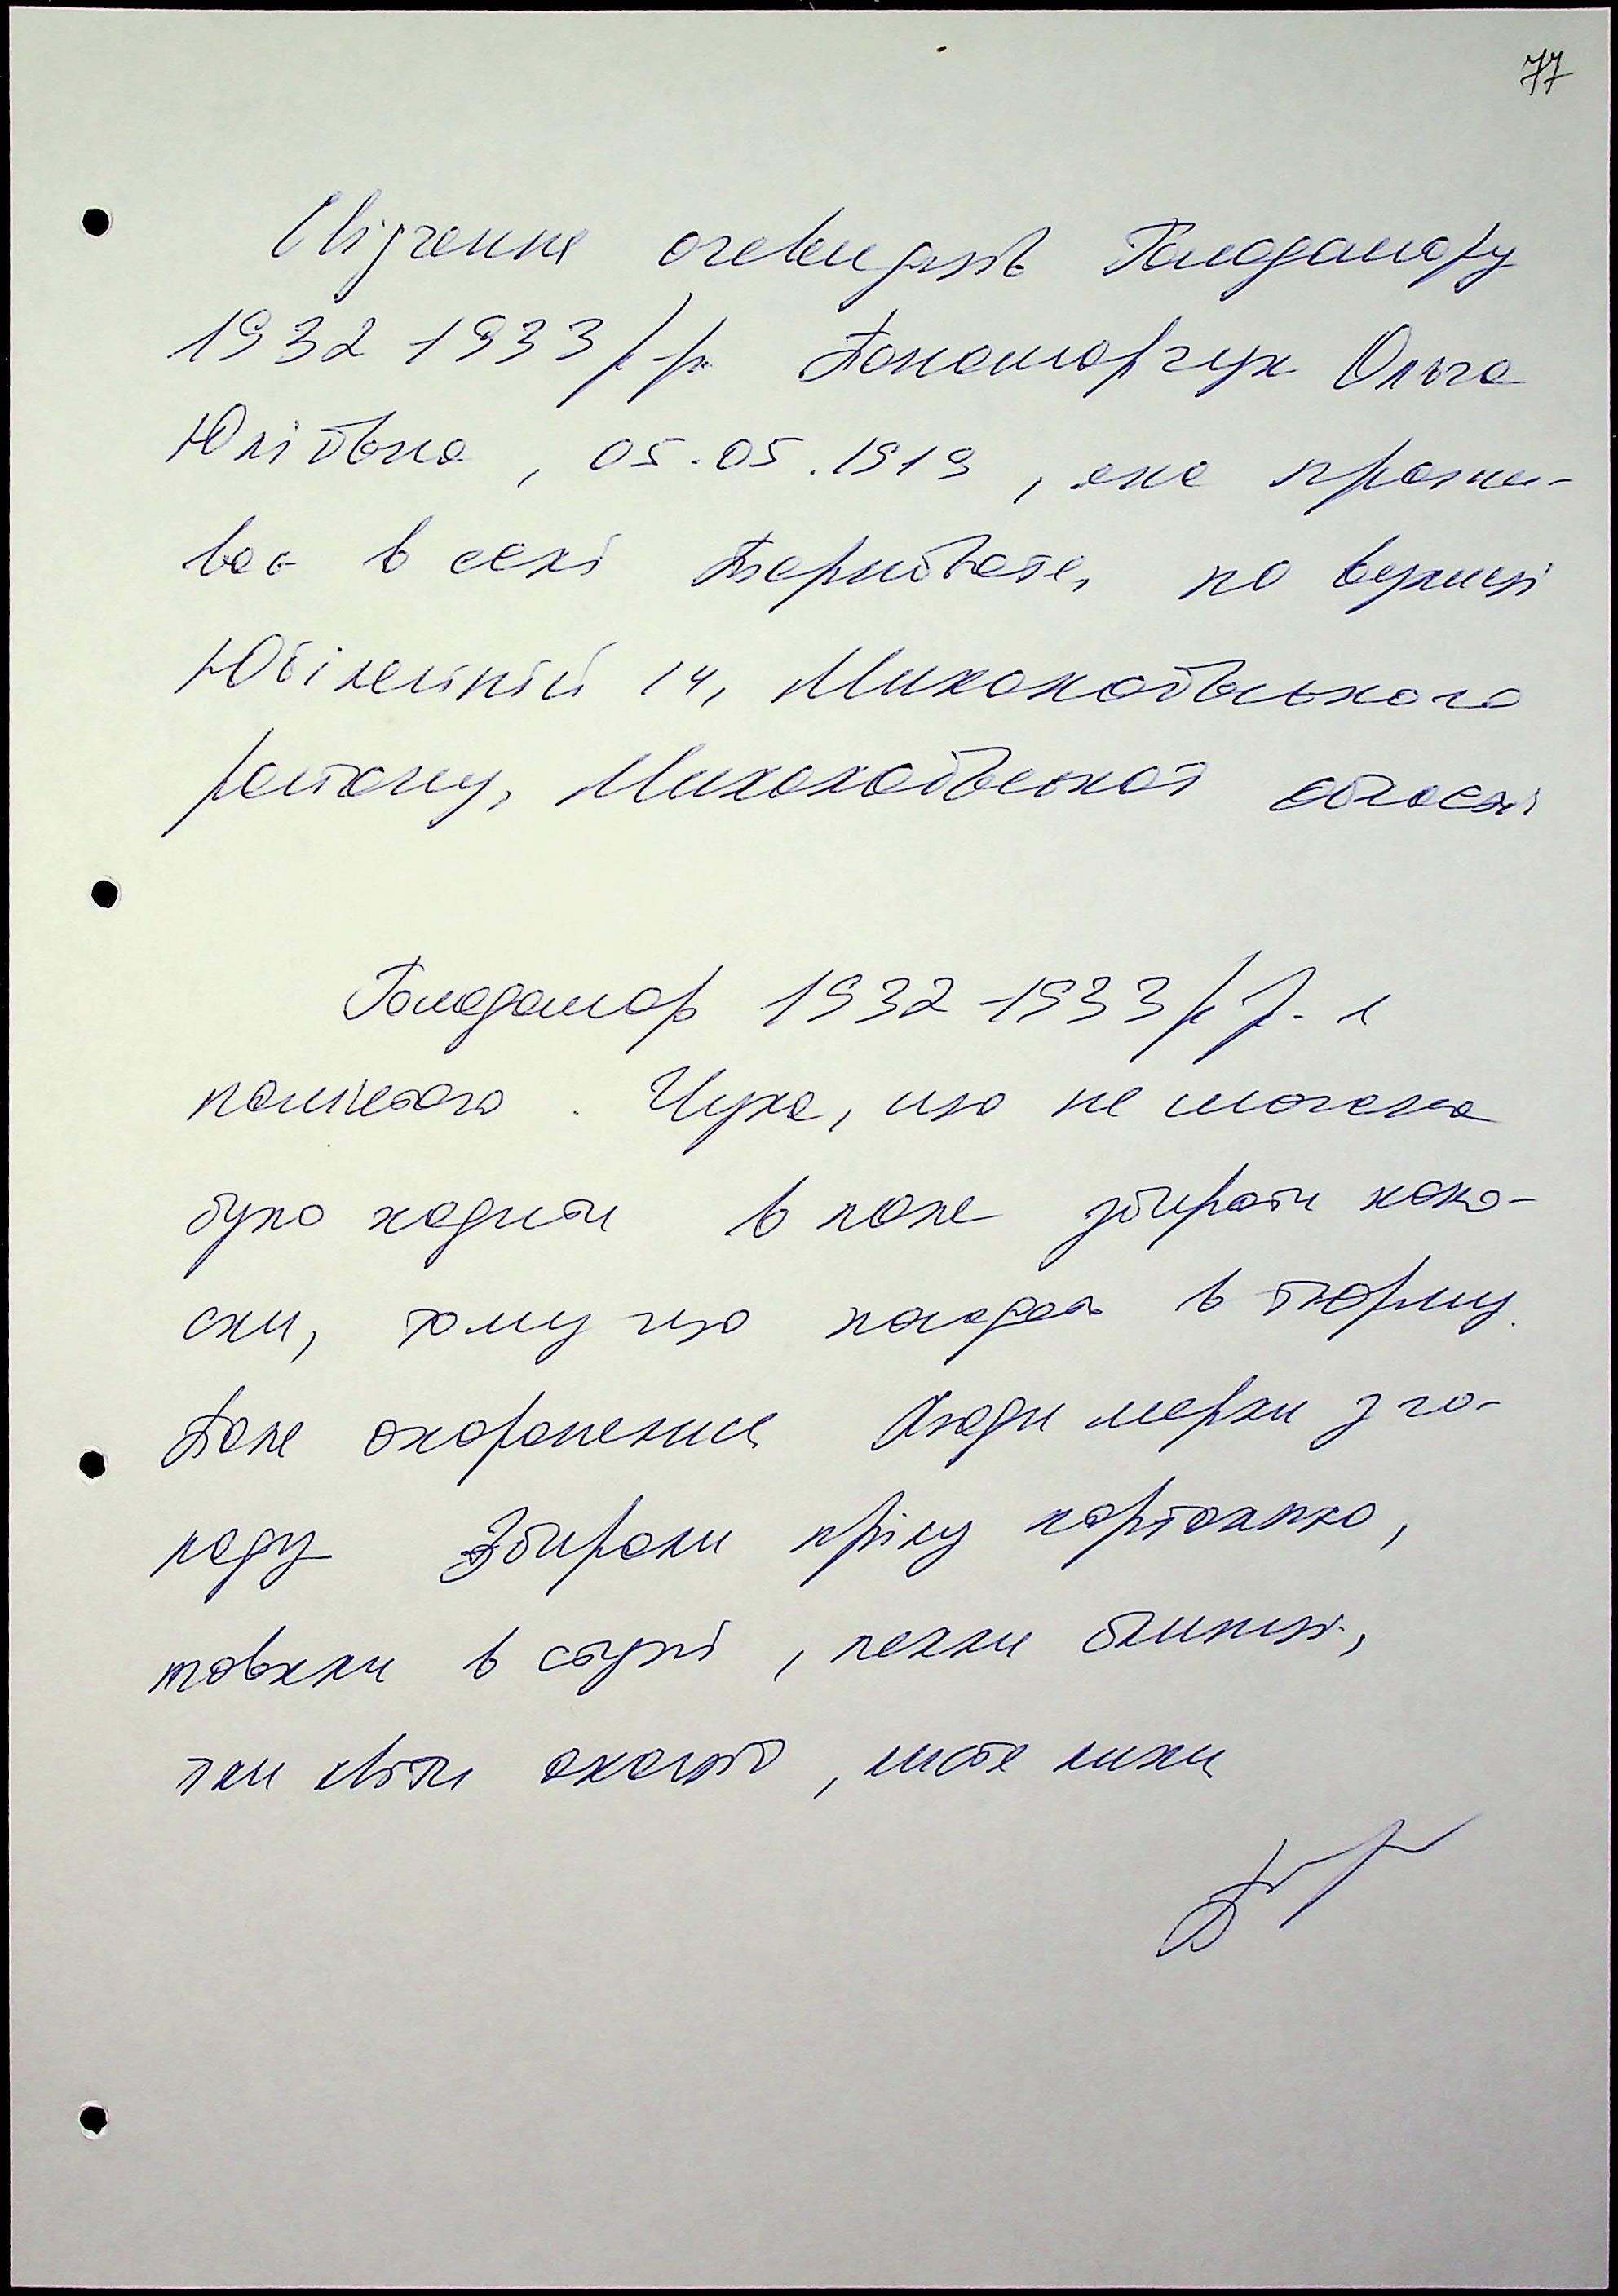 77
Свідчення очевидців Голодомору
1932-1933 р.р. Пономарчук Ольга
Юліївна, 05.05.1919, яка прожи-
ває в селі по вулиці
Ювілейній 14, Миколаївського
району, Миколаївської області
Голодомор 1932-1933 р.р. я
пам'ятаю. Чула, що не можна
було ходити в поле збирати коло-
ски, тому що попадеш в тюрму.
Поле охоронялися Люди мерли з го-
лоду Збирали прілу картоплю,
товкли в ступі, пекли блинці,
їли квіти акації, мати